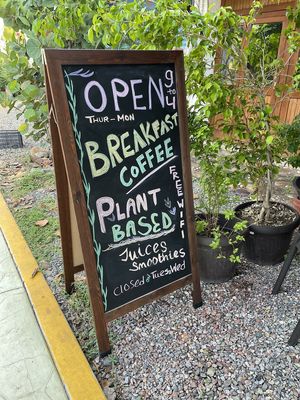 OPEN 9 to 4
THUR-MON
BREAKFAST
COFFEE
FREE WIFI
PLANT
BASED
JUICES
SMOOTHIES
CLOSED Tuesday & WED